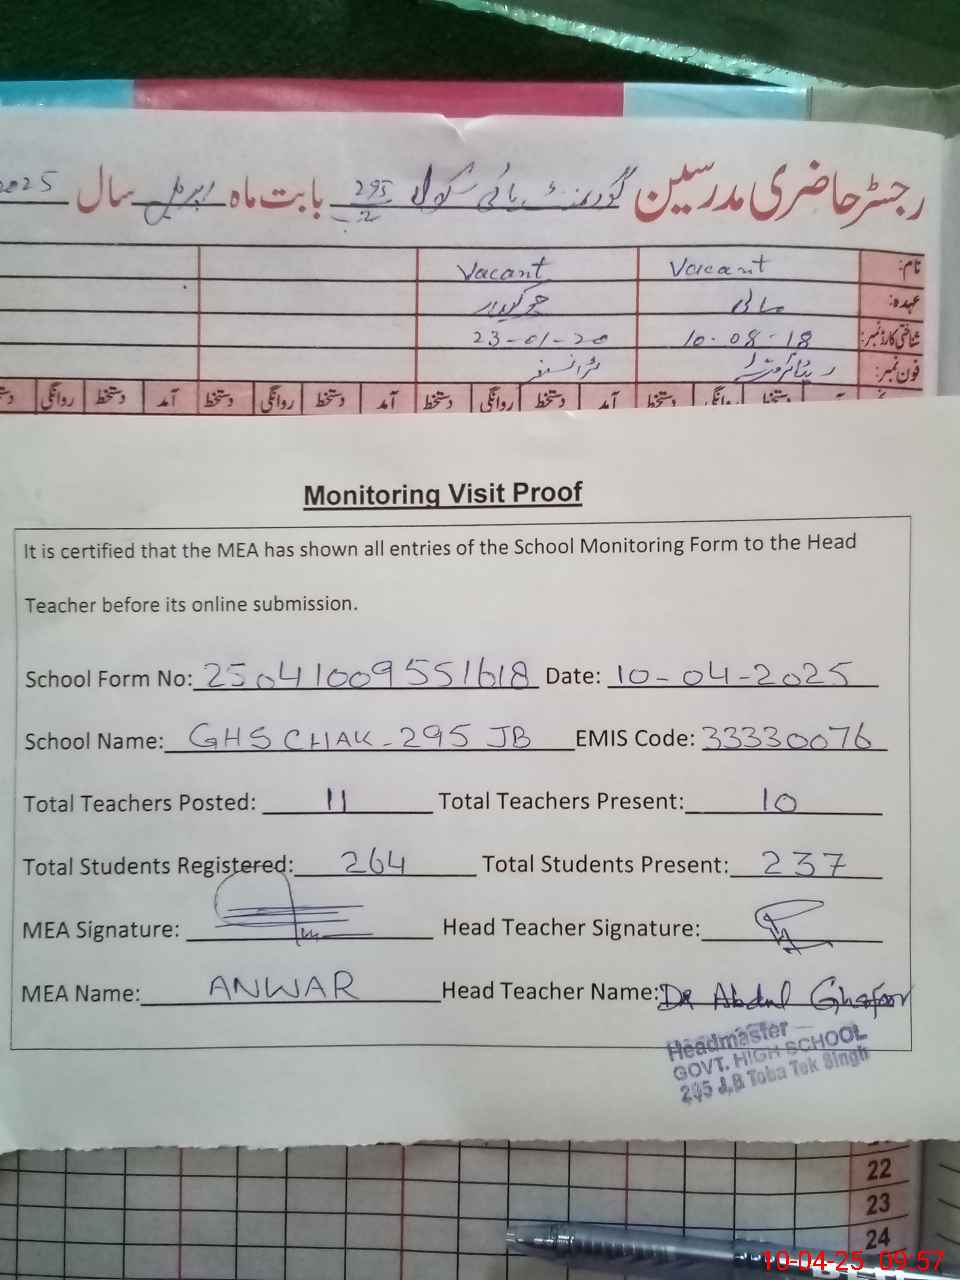 رجسٹر حاضری مدرسین گورنمنٹ ہائی سکول 295 بابت ماہ اپریل سال 2025
نام: Vacant Vacant
عہدہ: مالی چوکیدار
شناختی کارڈ نمبر: 10-08-18 23-01-20
فون نمبر: ریٹائرمنٹ ٹرانسفر
دستخط روانگی دستخط آمد دستخط روانگی دستخط آمد دستخط روانگی دستخط آمد دستخط
Monitoring Visit Proof
It is certified that the MEA has shown all entries of the School Monitoring Form to the Head
Teacher before its online submission.
School Form No: 25041009551618 Date: 10-04-2025
School Name: GHS CHAK-295 JB EMIS Code: 33330076
Total Teachers Posted: 11 Total Teachers Present: 10
Total Students Registered: 264 Total Students Present: 237
MEA Signature: Head Teacher Signature:
MEA Name: ANWAR Head Teacher Name: Dr Abdul Ghafoor
Headmaster
GOVT. HIGH SCHOOL
295 J.B Toba Tek Singh
22
23
24
10-04-25 09:57